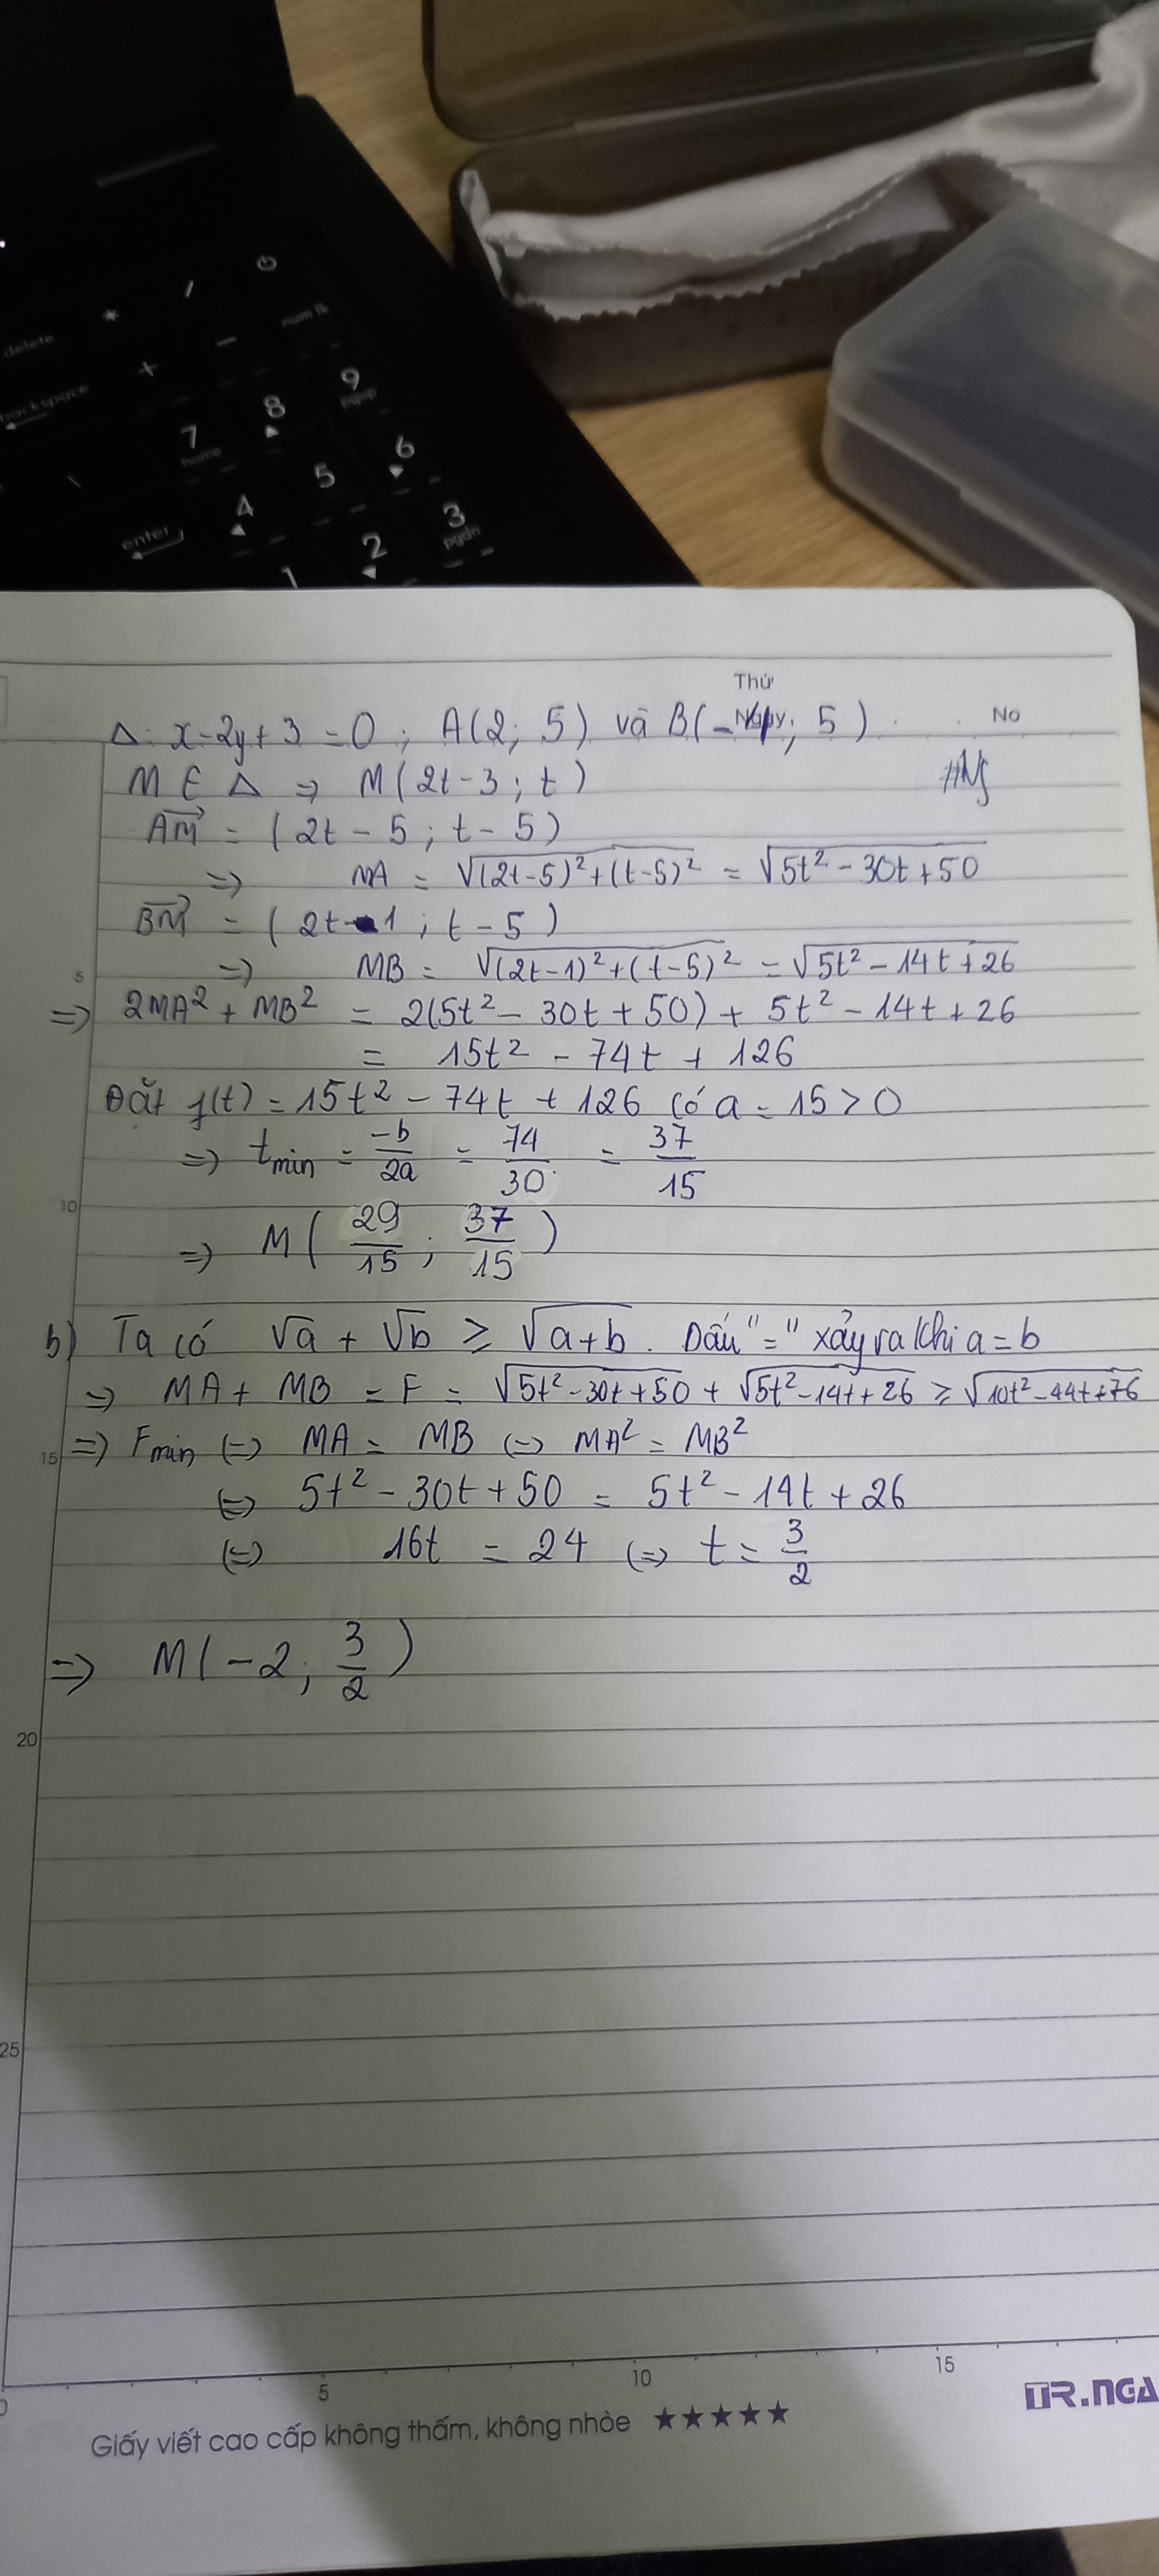 delete
* / ⏻
backspace + − num lk
7 home 8 9 pgup
\ 4 5 6
enter 1 2 3 pgdn
Thứ
Ngày No
Δ: x-2y+3=0; A(2; 5) và B(-4; 5)
M ∈ Δ => M(2t-3; t) #Ng
AM→ = (2t-5; t-5)
=> MA = √((2t-5)²+(t-5)²) = √(5t²-30t+50)
BM→ = (2t-1; t-5)
5
=> MB = √((2t-1)²+(t-5)²) = √(5t²-14t+26)
=> 2MA² + MB² = 2(5t²-30t+50) + 5t²-14t+26
= 15t² - 74t + 126
Đặt f(t) = 15t² - 74t + 126 có a = 15 > 0
=> tmin = -b/2a = 74/30 = 37/15
10
=> M(29/15; 37/15)
b) Ta có √a + √b ≥ √(a+b). Dấu "=" xảy ra khi a = b
=> MA + MB = F = √(5t²-30t+50) + √(5t²-14t+26) ≥ √(10t²-44t+76)
15
=> Fmin <=> MA = MB <=> MA² = MB²
<=> 5t²-30t+50 = 5t²-14t+26
<=> 16t = 24 <=> t = 3/2
=> M(-2; 3/2)
20
25
0 5 10 15
Giấy viết cao cấp không thấm, không nhòe ★★★★★ TR.NGA